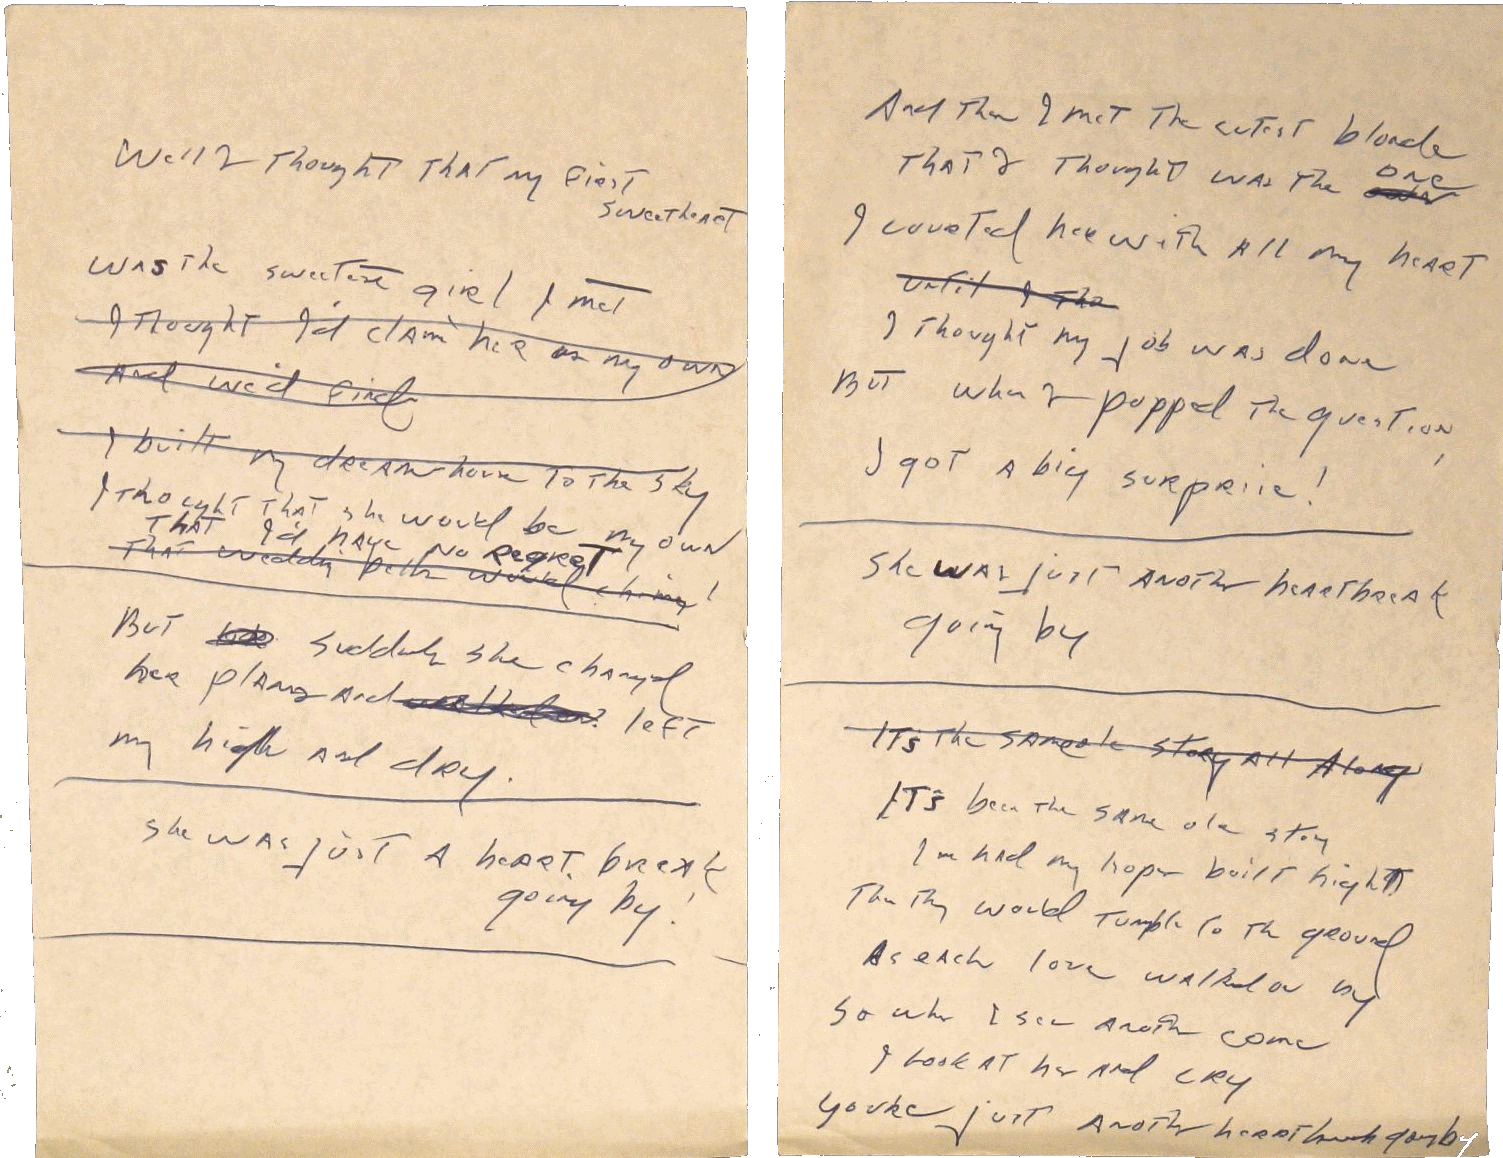 Well I thought that my first
sweetheart
was the sweetest girl I met
I thought I'd claim her as my own
And we'd find
I built my dream house to the sky
I thought that she would be my own
that I'd have no regret
That weddin bells would chime!
But suddenly she changed
her plans and left
my high and dry.
she was just a heart break
going by!
And then I met the cutest blonde
that I thought was the one
I courted her with all my heart
until I tho
I thought my job was done
But when I popped the question,
I got a big surprise!
She was just another heartbreak
going by
It's the same ole story all along
It's been the same ole story
I've had my hopes built high
Then they would tumble to the ground
As each love walked on by
So when I see another come
I look at her and cry
You're just another heartbreak going by